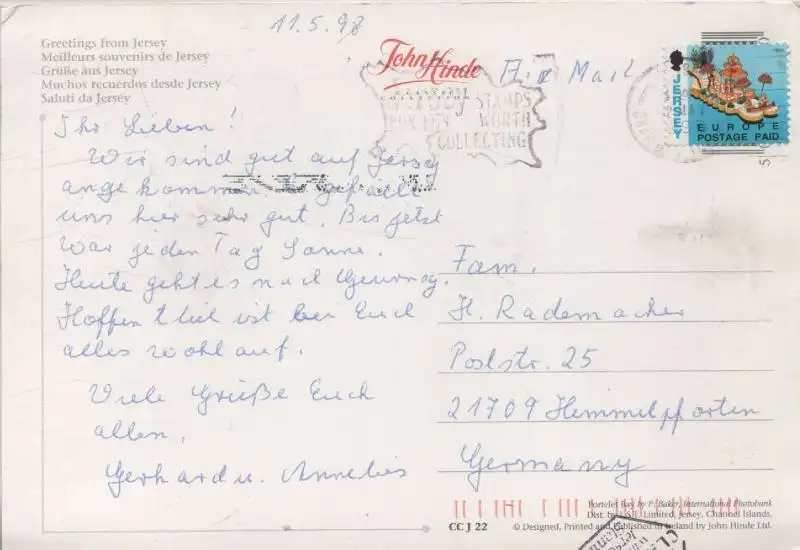 11.5.98
Greetings from Jersey
Meilleurs souvenirs de Jersey
Grüße aus Jersey
Muchos recuerdos desde Jersey
Saluti da Jersey
John Hinde
COLLECTION
STAMPS
WORTH
COLLECTING
Air Mail
JERSEY
EUROPE
POSTAGE PAID
Ihr Lieben!
Wir sind gut auf Jersey
angekommen. Es gefällt
uns hier sehr gut. Bis jetzt
war jeden Tag Sonne.
Heute geht es nach Guernsey.
Hoffentlich ist bei Euch
alles wohlauf.
Viele Grüße Euch
allen,
Gerhard u. Annelies
Fam.
H. Rademacher
Poststr. 25
21709 Hemmelpforten
Germany
Portelet Bay by P. Baker, International Photobank
Dist. by Limited, Jersey, Channel Islands.
CC J 22
© Designed, Printed and Published in Ireland by John Hinde Ltd.